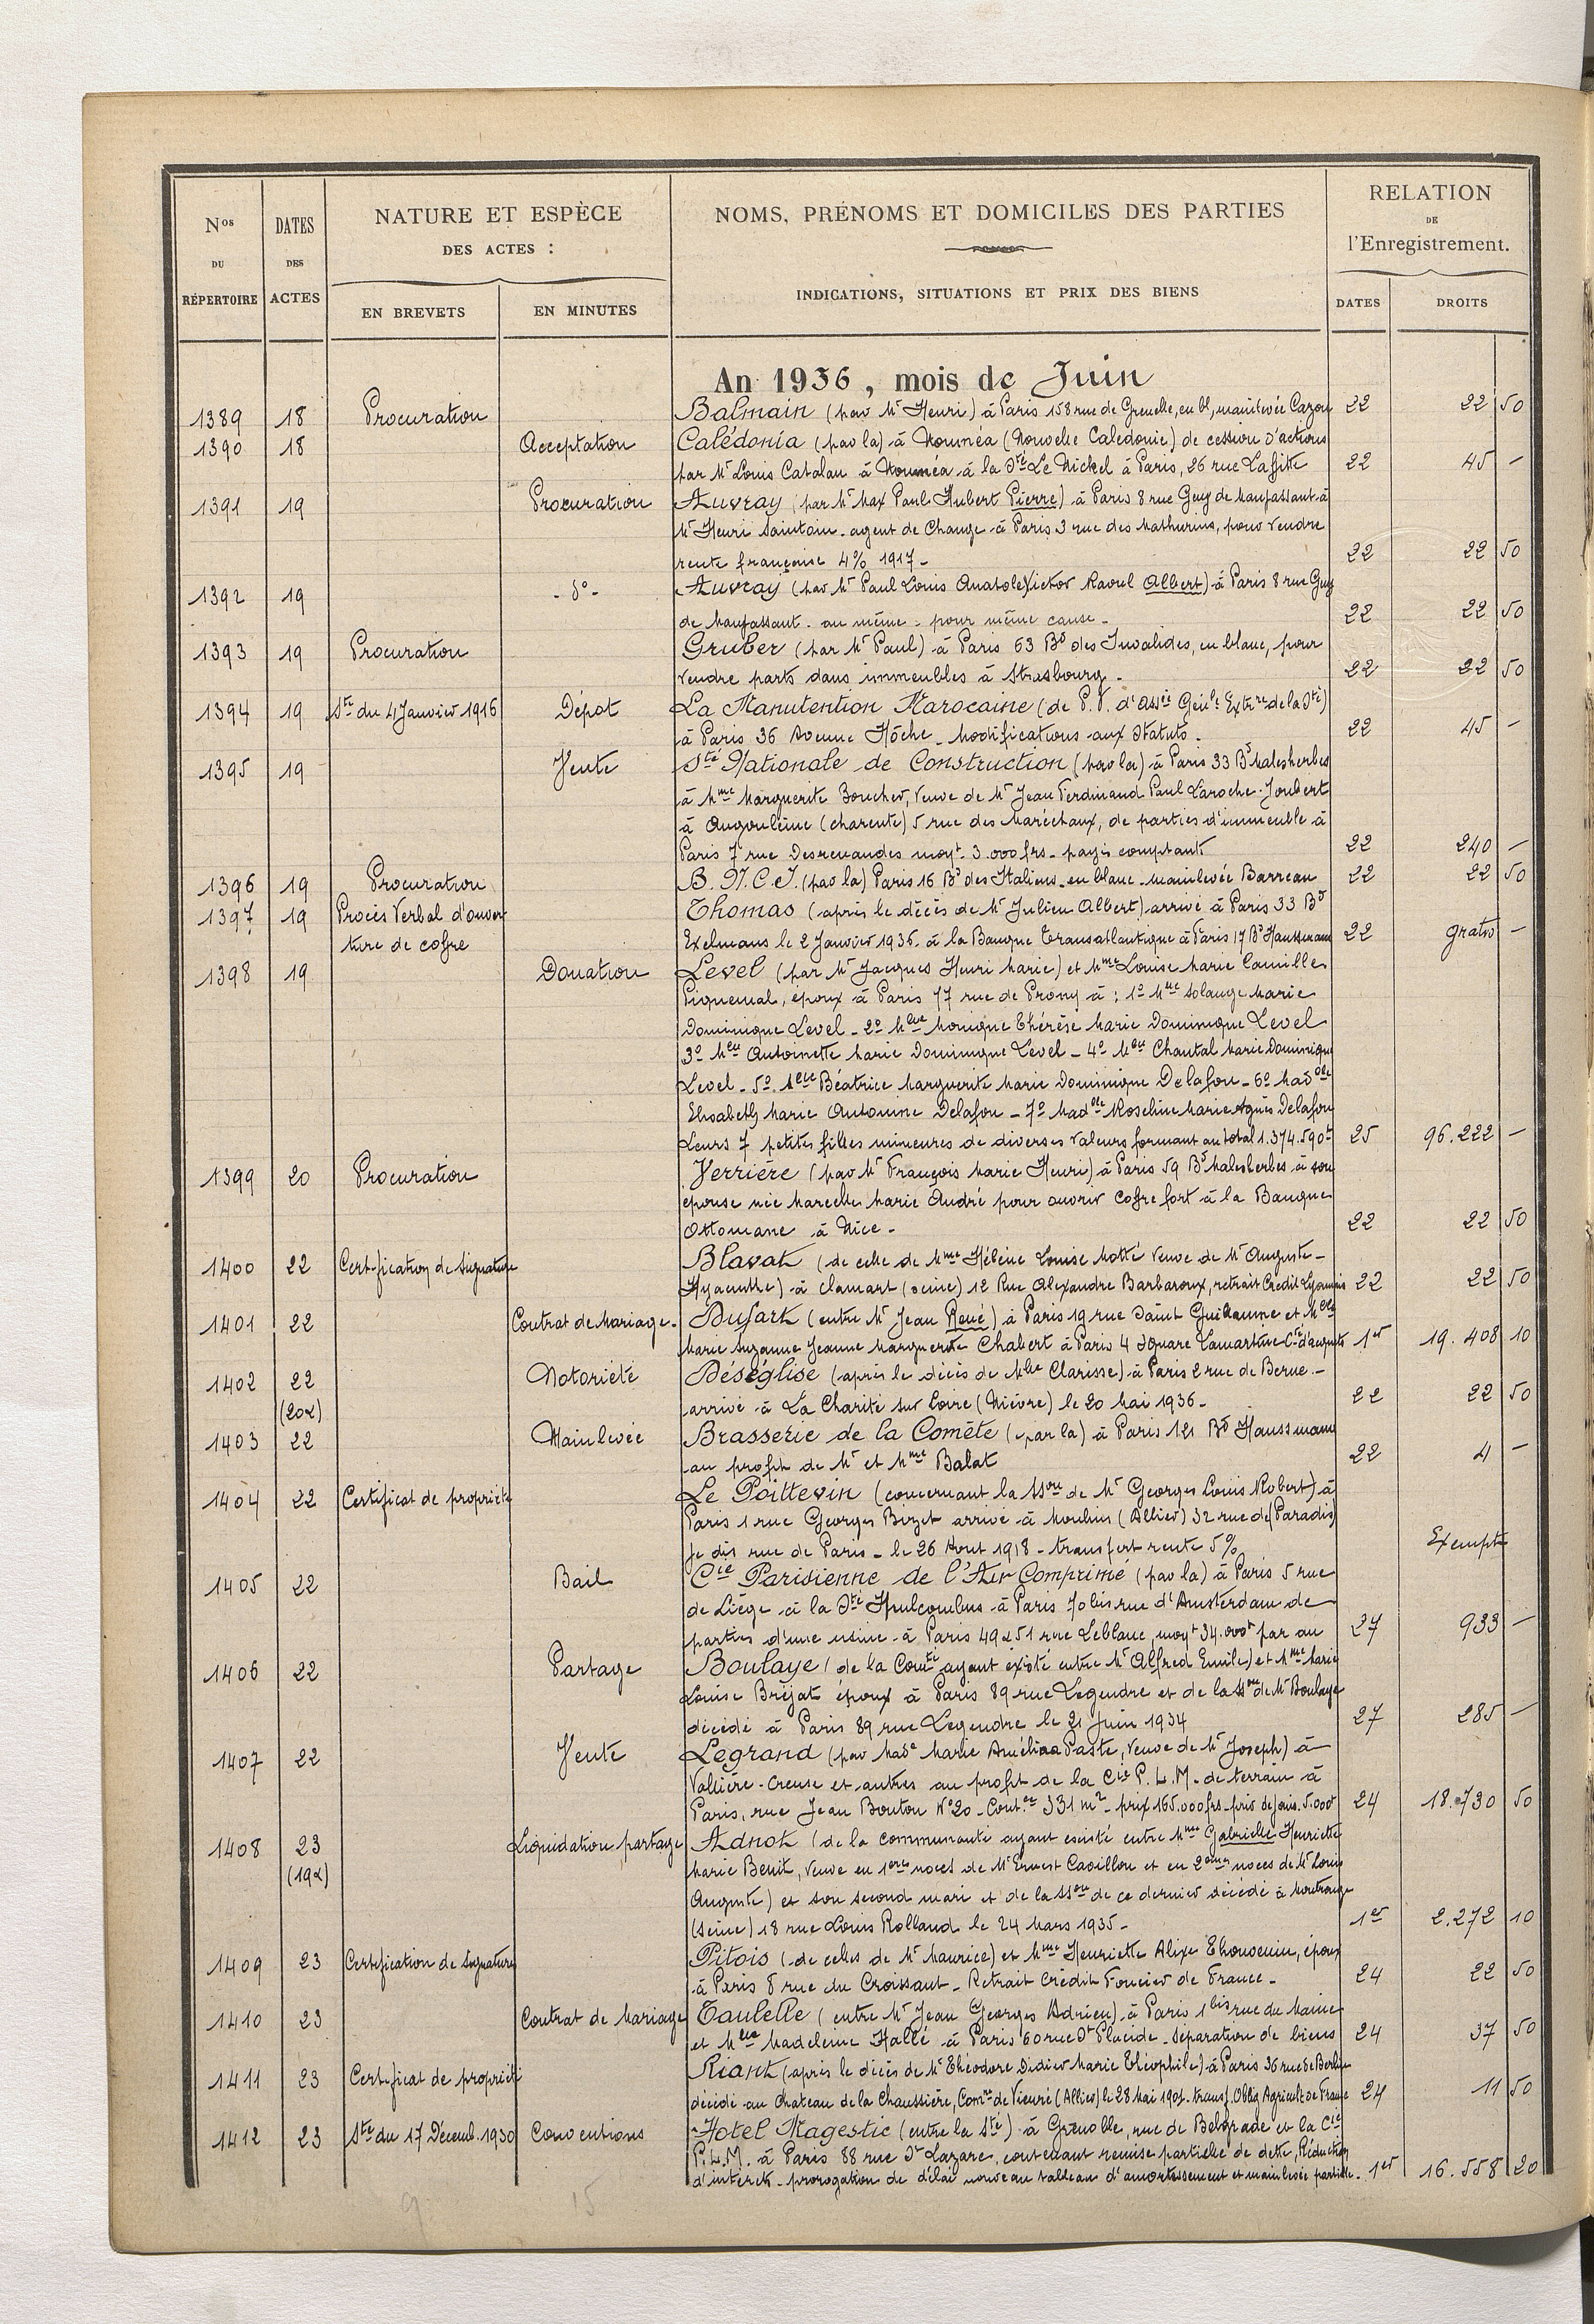 Nos DU RÉPERTOIRE
DATES DES ACTES
NATURE ET ESPÈCE DES ACTES :
EN BREVETS
EN MINUTES
NOMS, PRÉNOMS ET DOMICILES DES PARTIES
INDICATIONS, SITUATIONS ET PRIX DES BIENS
RELATION DE l'Enregistrement.
DATES
DROITS
An 1936, mois de Juin
1389 18 Procuration Balmain (par Mr Henri) à Paris 158 rue de Grenelle, en bl, mainlevée Cazou 22 22 50
1390 18 Acceptation Calédonia (par la) à Nouméa (Nouvelle Calédonie) de cession d'actions
par Mr Louis Catalan à Nouméa à la Sté Le Nickel à Paris, 26 rue Laffitte 22 45 -
1391 19 Procuration Auvray (par Mr Max Paul Hubert Pierre) à Paris 8 rue Guy de Maupassant à
Mr Henri Saintoin agent de Change à Paris 3 rue des Mathurins, pour vendre
rente française 4% 1917 - 22 22 50
1392 19 - do - Auvray (par Mr Paul Louis Anatole Victor Raoul Albert) à Paris 8 rue Guy
de Maupassant - au même - pour même cause - 22 22 50
1393 19 Procuration Gruber (par Mr Paul) à Paris 63 Bd des Invalides, en blanc, pour
vendre parts dans immeubles à Strasbourg - 22 22 50
1394 19 Sté du 4 Janvier 1916 Dépot La Manutention Marocaine (de P.V. d'Assée Génle Extre de la Sté)
à Paris 36 Avenue Hoche - Modifications aux Statuts - 22 45 -
1395 19 Vente Sté Nationale de Construction (par la) à Paris 33 Bd Malesherbes
à Mme Marguerite Boucher, Veuve de Mr Jean Ferdinand Paul Laroche-Joubert
à Angoulême (Charente) 5 rue des Maréchaux, de parties d'immeuble à
Paris 7 rue Desrenaudes moyt 3.000 frs - payés comptant 22 240 -
1396 19 Procuration B.N.C.I. (par la) Paris 16 Bd des Italiens - en blanc - mainlevée Barreau 22 22 50
1397 19 Procès Verbal d'ouver Thomas (après le décès de Mr Julien Albert) arrivé à Paris 33 Bd
ture de cofre Exelmans le 2 Janvier 1936 à la Banque Transatlantique à Paris 17 Bd Haussmann 22 gratis -
1398 19 Donation Level (par Mr Jacques Henri Marie) et Mme Louise Marie Camille
Piquemal, époux à Paris 77 rue de Prony à : 1º Melle Solange Marie
Dominique Level - 2º Melle Monique Thérèse Marie Dominique Level
3º Melle Antoinette Marie Dominique Level - 4º Melle Chantal Marie Dominique
Level - 5º Melle Béatrice Marguerite Marie Dominique Delafon - 6º Madelle
Elisabeth Marie Antonine Delafon - 7º Madelle Roseline Marie Agnès Delafon
Leurs 7 petites filles mineures de diverses valeurs formant au total 1.374.590f 25 96.222 -
1399 20 Procuration Verrière (par Mr François Marie Henri) à Paris 59 Bd Malesherbes à son
épouse née Marcelle Marie André pour ouvrir cofre fort à la Banque
Ottomane à Nice - 22 22 50
1400 22 Certification de Signature Blavat (de celle de Mme Hélène Louise Motté Veuve de Mr Auguste -
Hyacinthe) à Clamart (Seine) 12 Rue Alexandre Barbaroux, retrait Crédit Lyonnais 22 22 50
1401 22 Contrat de Mariage - Dufart (entre Mr Jean René) à Paris 19 rue Saint Guillaume et Melle
Marie Suzanne Jeanne Marguerite Chabert à Paris 4 Square Lamartine Cté d'acquêts 1er 19.408 10
1402 22 Notoriété Déséglise (après le décès de Melle Clarisse) à Paris 2 rue de Berne -
(20d) arrivé à La Charité sur Loire (Nièvre) le 20 Mai 1936 - 22 22 50
1403 22 Mainlevée Brasserie de la Comète (par la) à Paris 121 Bd Haussmann
au profit de Mr et Mme Balat 22 4 -
1404 22 Certificat de propriété Le Poittevin (concernant la Ssion de Mr Georges Louis Robert) à
Paris 1 rue Georges Bizet arrivé à Moulins (Allier) 32 rue de (Paradis)
je dis rue de Paris - le 26 Aout 1918 - transfert rente 5% Exempte
1405 22 Bail Cie Parisienne de l'Air Comprimé (par la) à Paris 5 rue
de Liège à la Sté à Paris 70 bis rue d'Amsterdam de
parties d'une usine à Paris 49 & 51 rue Leblanc, moyt 34.000f par an 27 933 -
1406 22 Partage Boulaye (de la Comté ayant existé entre Mr Alfred Emile) et Mme Marie
Louise Bréjat époux à Paris 89 rue Legendre et de la Ssion de Mr Boulaye
décédé à Paris 89 rue Legendre le 21 Juin 1934 27 285 -
1407 22 Vente Legrand (par Made Marie Amélina Paste, Veuve de Mr Joseph) à
Vallière - Creuse et autres au profit de la Cie P.L.M. de terrain à
Paris, rue Jean Bouton Nº 20 - Contce 331 m² - prix 165.000 frs - 5.000f 24 18.730 50
1408 23 Liquidation partage Adnot (de la communauté ayant existé entre Mme Gabrielle Henriette
(19d) Marie Benit, Veuve en 1ères noces de Mr Ernest Cavillon et en 2èmes noces de Mr Louis
Auguste) et son second mari et de la Ssion de ce dernier décédé à Montrouge
(Seine) 18 rue Louis Rolland le 24 Mars 1935 - 1er 2.272 10
1409 23 Certification de Signature Pitois (de celles de Mr Maurice) et Mme Henriette Alixe Thouvenin, époux
à Paris 8 rue du Croissant - Retrait Crédit Foncier de France - 24 22 50
1410 23 Contrat de Mariage Taulelle (entre Mr Jean Georges Adrien) à Paris 1 bis rue du Maine
et Melle Madeleine Hallé à Paris 60 rue St Placide - Séparation de biens 24 37 50
1411 23 Certificat de propriété Riant (après le décès de Mr Théodore Didier Marie Théophile) à Paris 36 rue de Berlin
décédé au Chateau de la Chaussière, Comne de Vieuré (Allier) le 28 Mai 190 - transf. Oblig Agricult de France 24 11 50
1412 23 Sté du 17 Décemb. 1930 Conventions Hotel Magestic (entre la Sté) à Grenoble, rue de Belgrade et la Cie
P.L.M. à Paris 88 rue St Lazare, contenant remise partielle de dette, Réduction
d'intérêts - prorogation de délai nouveau tableau d'amortissement et mainlevée partielle - 1er 16.558 20
9 15